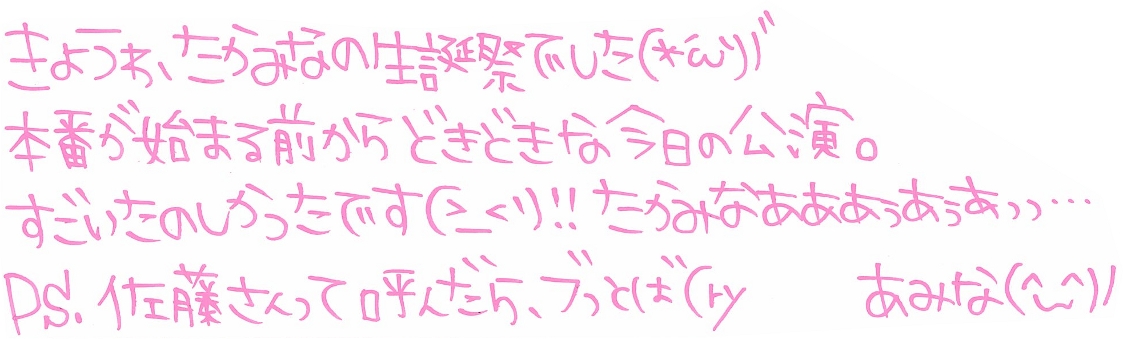 きょうゎ、たかみなの生誕祭でした(*´ω`))゛
本番が始まる前からどきどきな今日の公演。
すごいたのしかったです(≥_≤))!! たかみなあああぅあぅあっっ…
P.S. 佐藤さんって呼んだら、ブっとば(ry あみな(^_^))